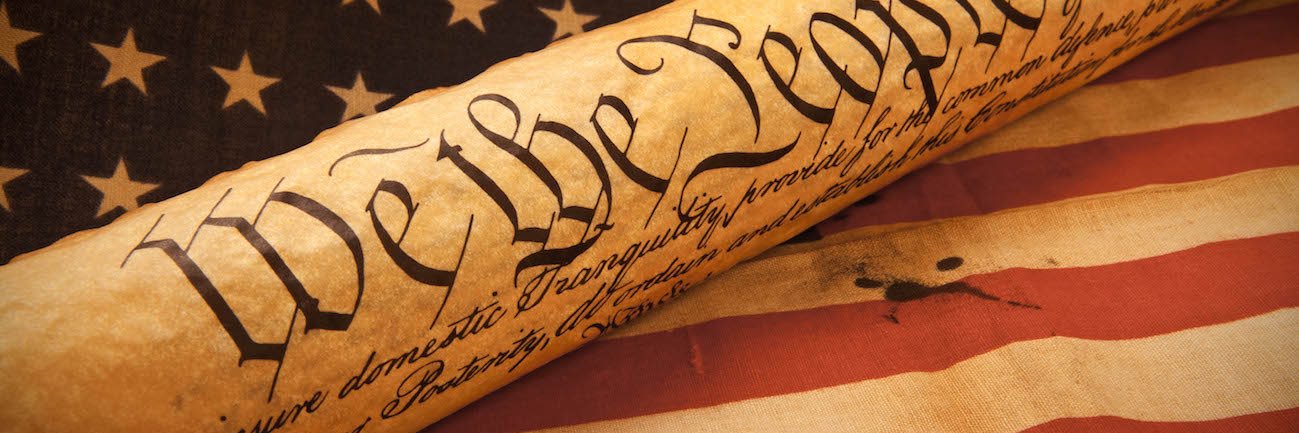 We the People
insure domestic Tranquility, provide for the common defence,
Posterity, do ordain and establish this Constitution for the